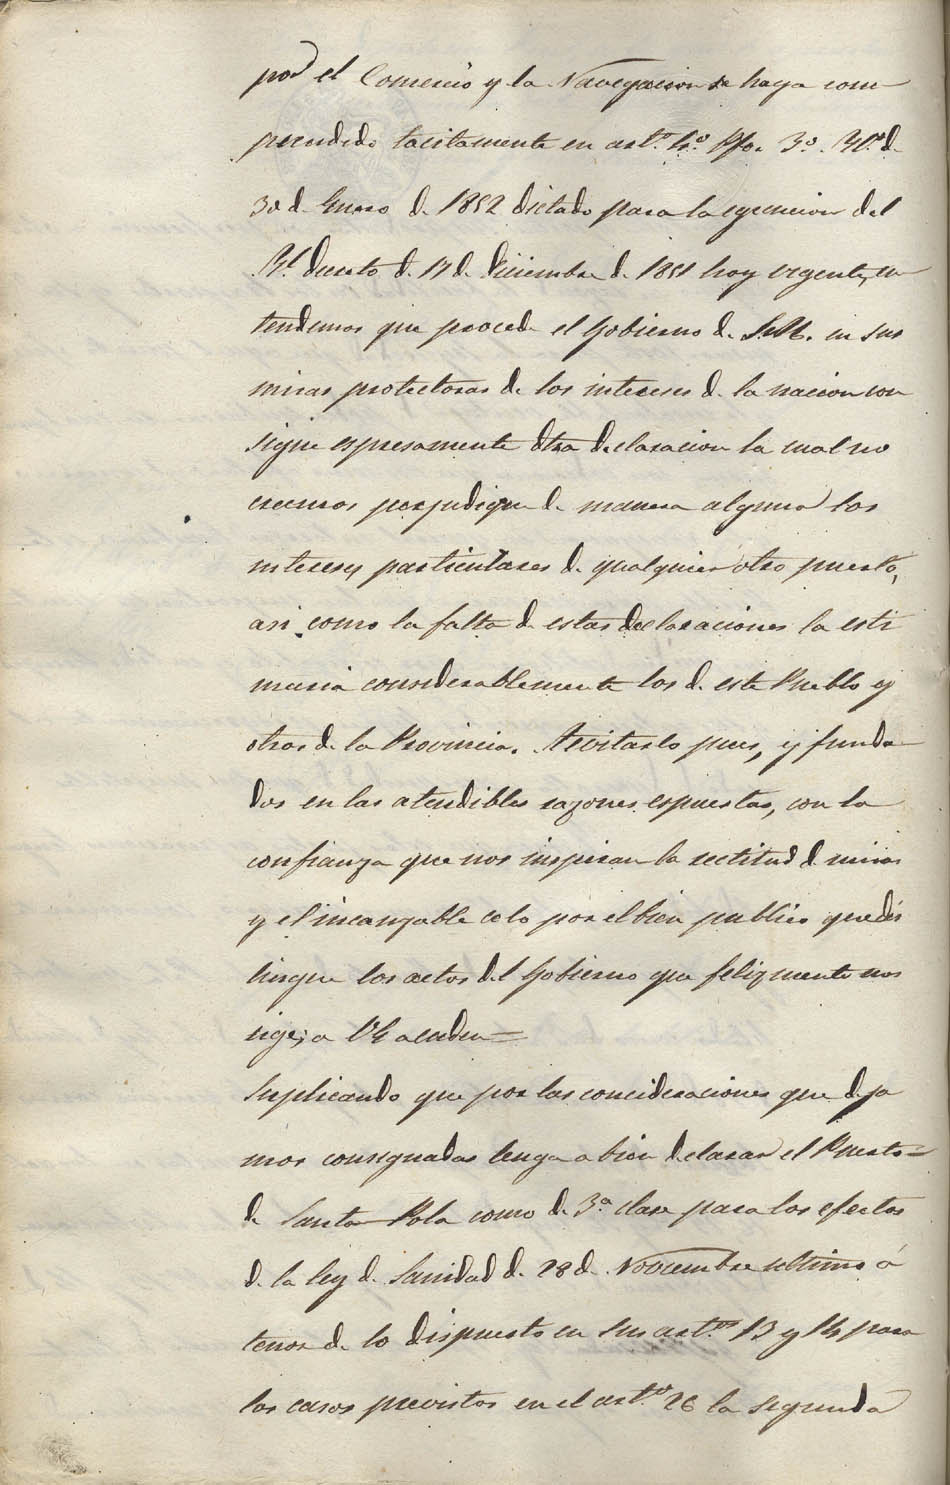 por el Comercio y la Navegacion se haya com
prendido tacitamente en art.º 4.º Pfo. 3.º Rl. d.
30 d. Enero d. 1852 dictado para la egecucion del
Rl. decreto d. 17 d. Diciembre d. 1851 hoy vigente, en
tendemos que procede el Gobierno d. S.M. en sus
miras protectoras de los intereses d. la nacion con
signe espresamente otra declaracion la cual no
creemos perjudique d. manera alguna los
intereses particulares d. qualquier otro puerto,
asi como la falta d. estas declaraciones la esti
maria considerablemente los d. este Pueblo y
otros d. la Provincia. A evitarlo pues, y funda
dos en las atendibles razones espuestas, con la
confianza que nos inspiran la rectitud d. miras
y el incanzable celo por el bien publico que dis
tingue los actos del Gobierno que felizmente nos
rige; a VE acuden =
Suplicando que por las concideraciones que deja
mos consignadas tenga a bien declarar el Puerto =
de Santa Pola como d. 3.ª clase para los efectos
d. la ley d. Sanidad d. 28 d. Noviembre ultimo á
tenor de lo dispuesto en sus art.os 13 y 14 para
los casos previstos en el art.º 26 la segunda